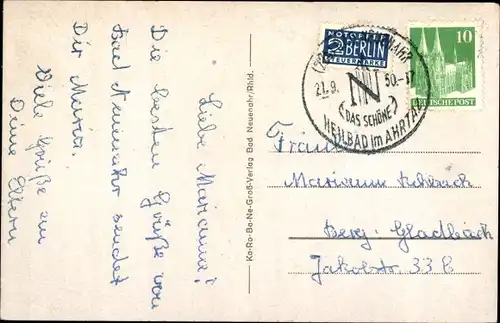 Liebe Marianne!
Die besten Grüße von
Bad Neuenahr sendet
Dir Maria.
Viele Grüße an
Deine Eltern
Ko-Ro-Bo-Ne-Groß-Verlag Bad Neuenahr/Rhld.
NOTOPFER
2 BERLIN
STEUERMARKE
21.9.50.-17
N
DAS SCHÖNE
HEILBAD im AHRTAL
10
DEUTSCHE POST
Marianne
Berg. Gladbach
Jakobstr. 33 B